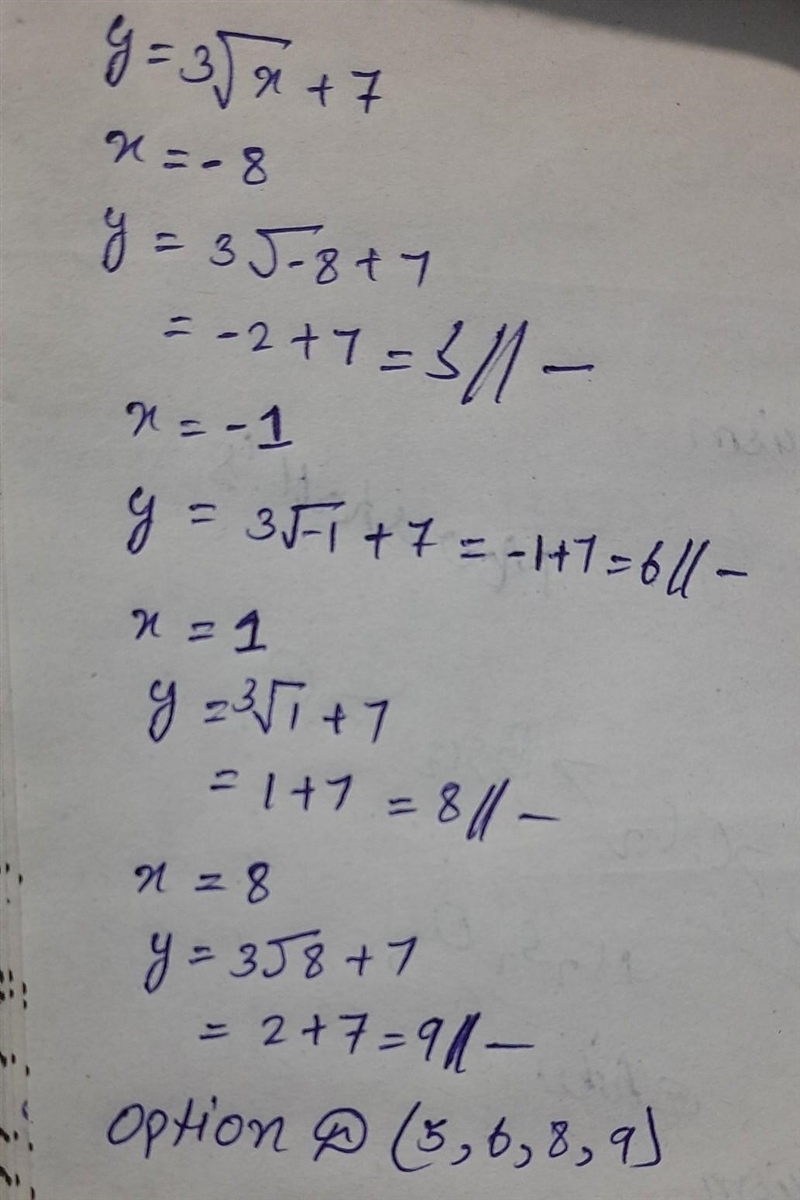 y = 3√x + 7
x = -8
y = 3√-8 + 7
= -2 + 7 = 5 // —
x = -1
y = 3√-1 + 7 = -1+7 = 6 // —
x = 1
y = ³√1 + 7
= 1 + 7 = 8 // —
x = 8
y = 3√8 + 7
= 2 + 7 = 9 // —
option (5, 6, 8, 9)